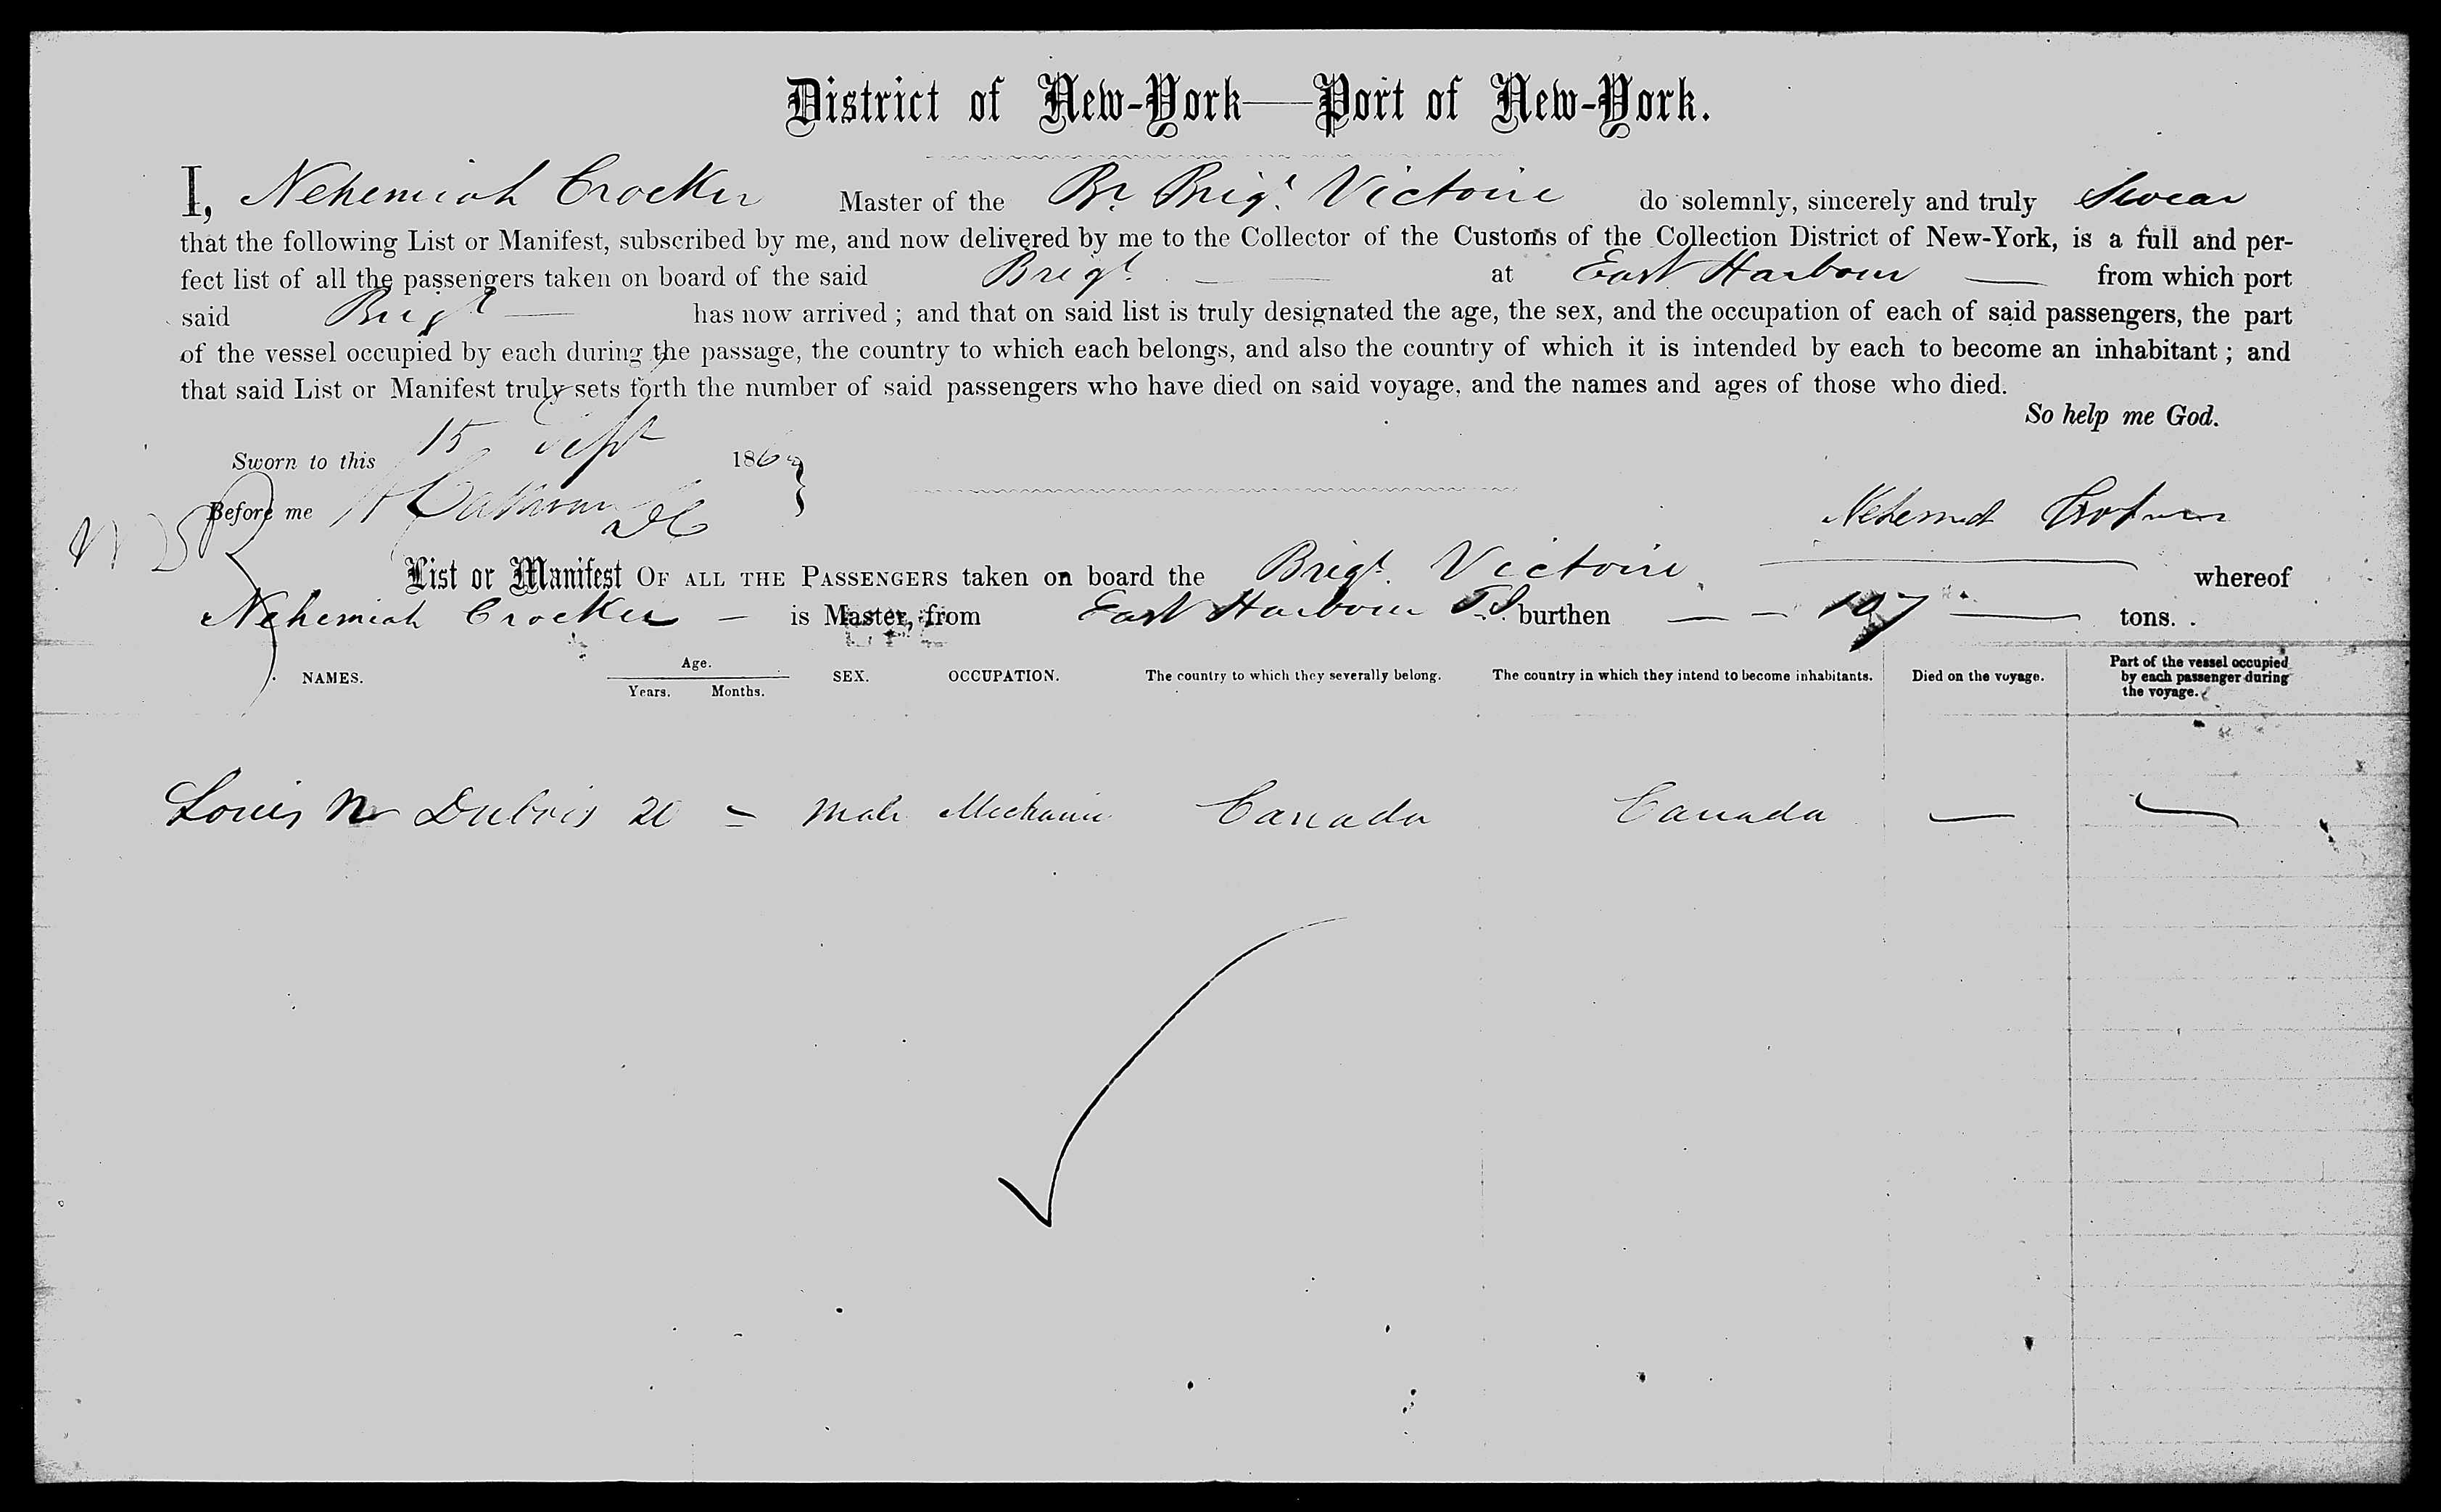 District of New-York—Port of New-York.
I, Nehemiah Crocker Master of the Br. Brigt. Victoire do solemnly, sincerely and truly Swear
that the following List or Manifest, subscribed by me, and now delivered by me to the Collector of the Customs of the Collection District of New-York, is a full and per-
fect list of all the passengers taken on board of the said Brigt. — at East Harbour — from which port
said Brigt — has now arrived ; and that on said list is truly designated the age, the sex, and the occupation of each of said passengers, the part
of the vessel occupied by each during the passage, the country to which each belongs, and also the country of which it is intended by each to become an inhabitant ; and
that said List or Manifest truly sets forth the number of said passengers who have died on said voyage, and the names and ages of those who died.
So help me God.
Sworn to this 15 Sept 186
Before me
Nehemiah Crocker
List or Manifest OF ALL THE PASSENGERS taken on board the Brigt. Victoire whereof
Nehemiah Crocker — is Master, from East Harbour burthen — — 107 — tons.
NAMES. Age. Years. Months. SEX. OCCUPATION. The country to which they severally belong. The country in which they intend to become inhabitants. Died on the voyage. Part of the vessel occupied by each passenger during the voyage.
Louis Dubois 20 = Male Mechanic Canada Canada — —